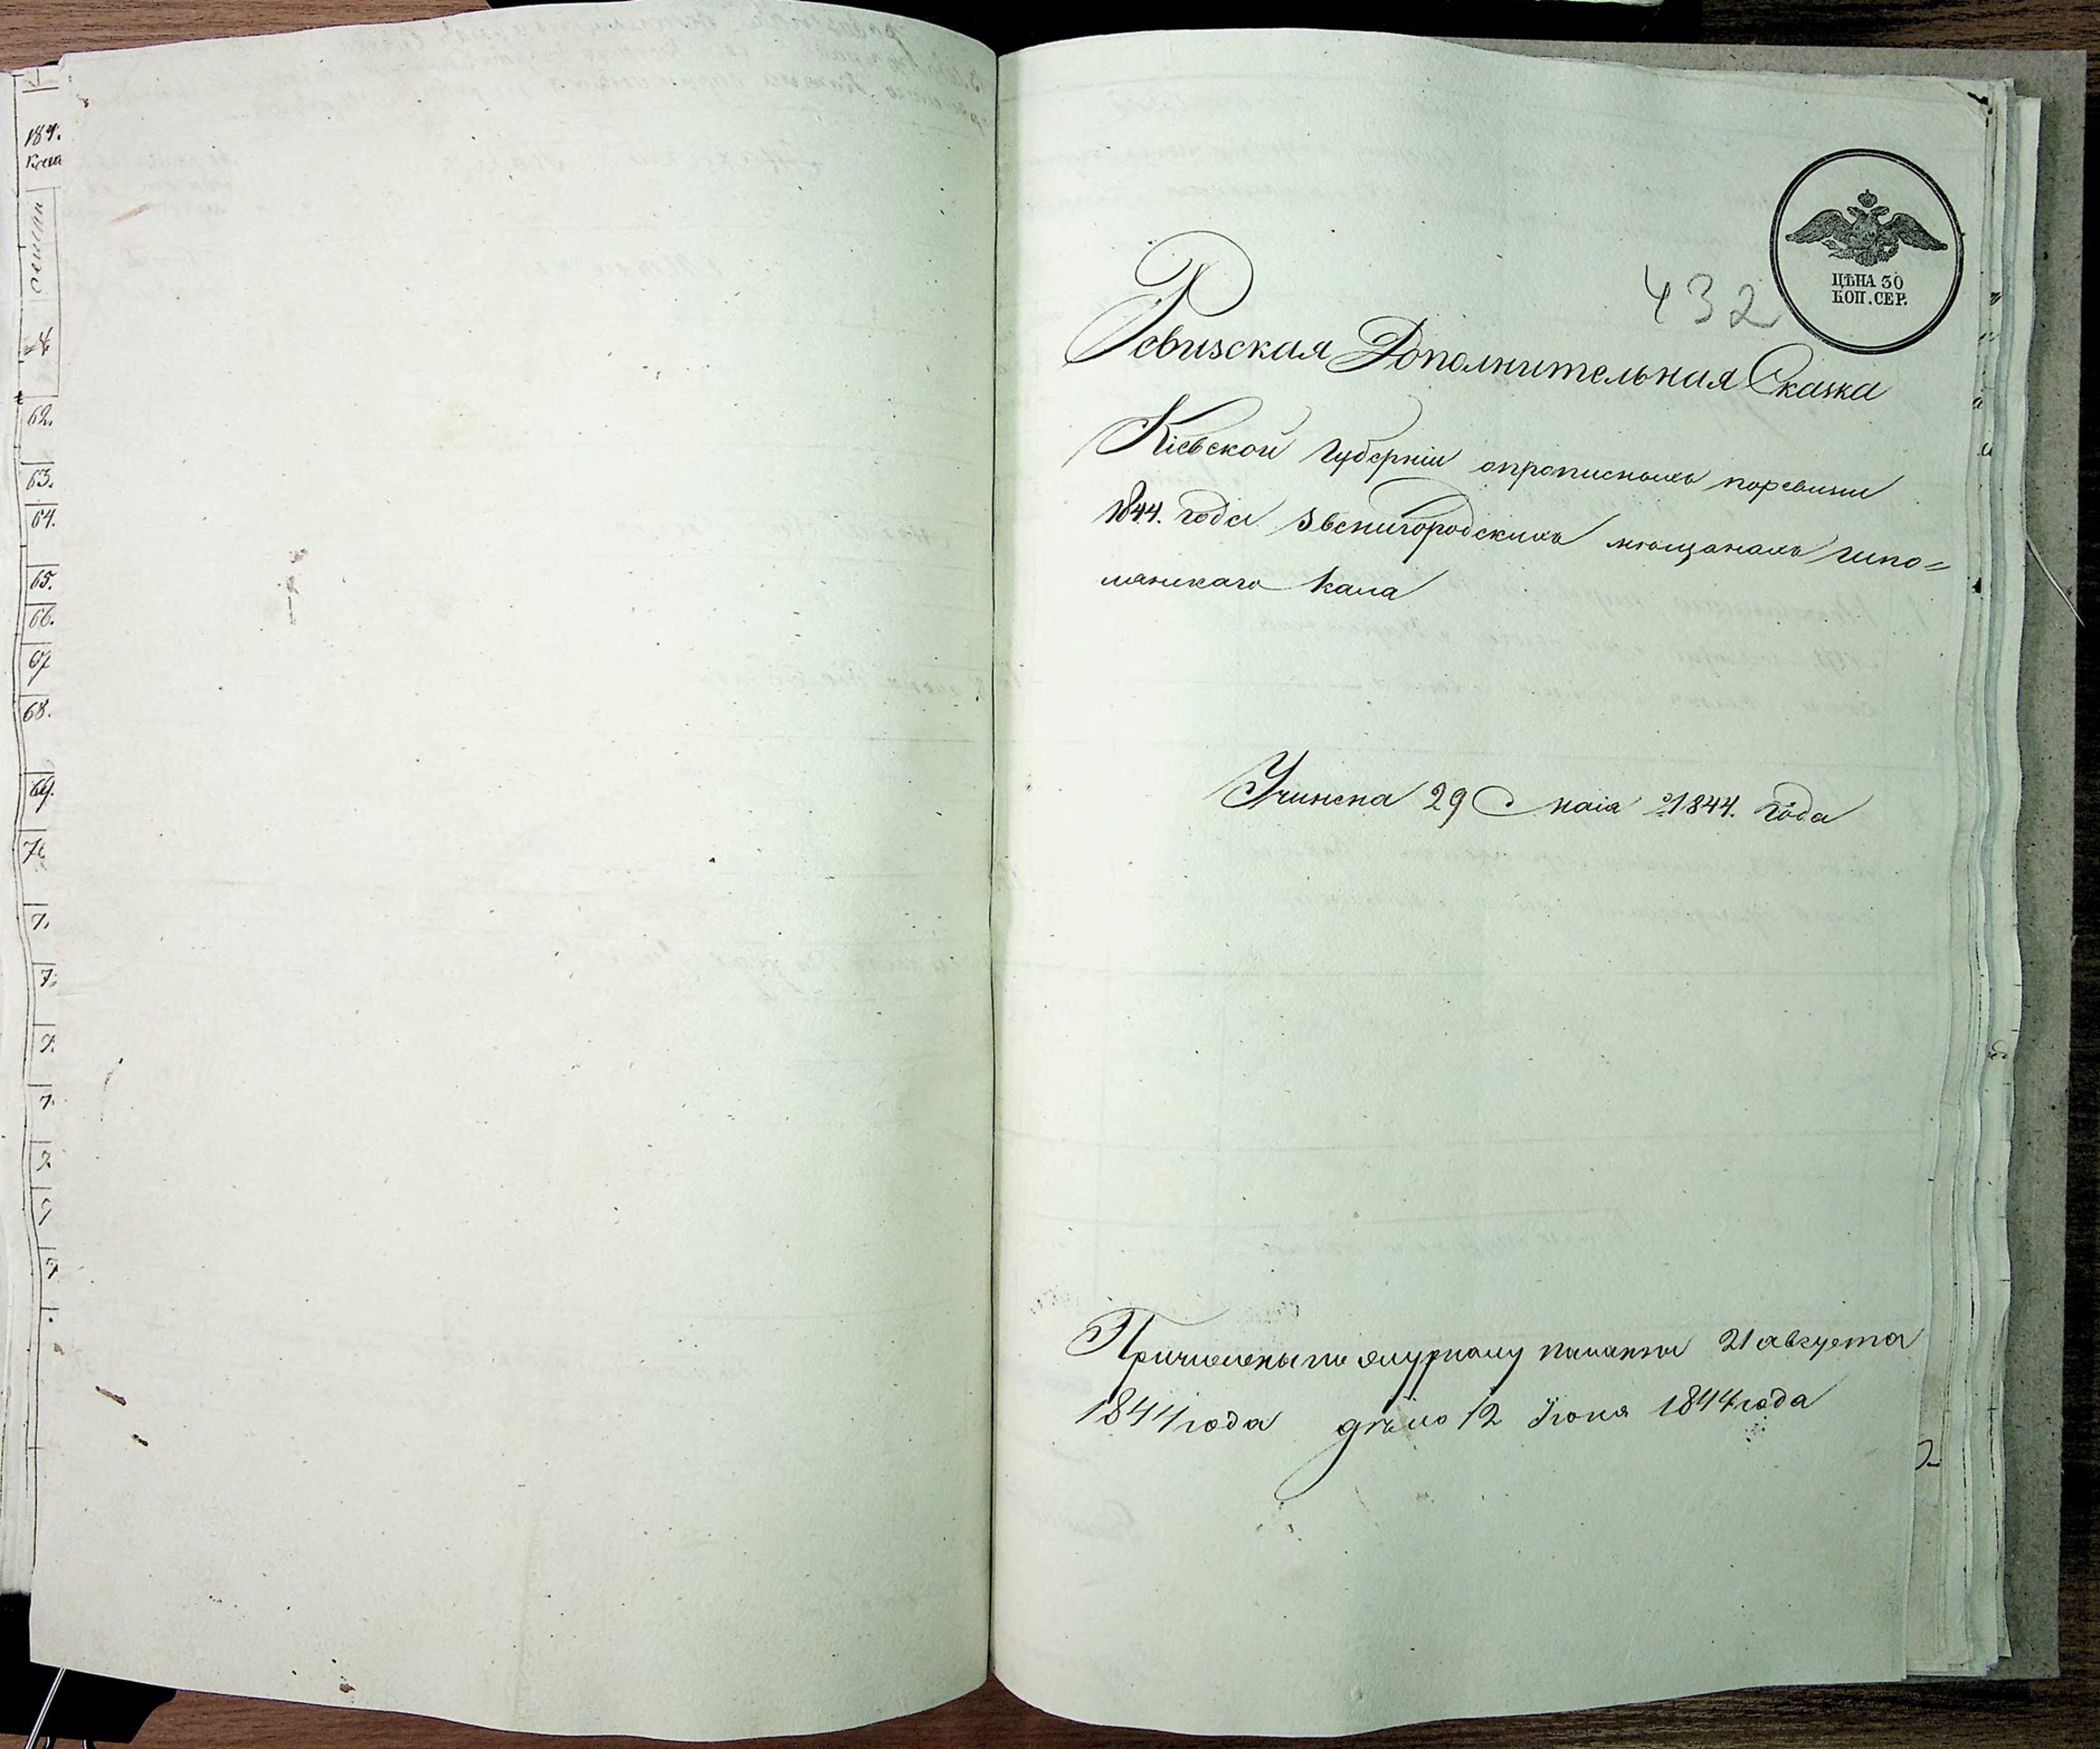 432
ЦѢНА 30
КОП. СЕР.
Ревизская Дополнительная Сказка
Кіевской Губерніи опрописныхъ поревизіи
1844. года Звенигородскихъ мѣщанахъ гило=
манскаго кала
Учинена 29 маія 1844. года
Причислены по журналу палаты 21 августа
1844 года дѣло 12 Іюня 1844 года
62.
63.
64.
65.
66.
67
68.
69.